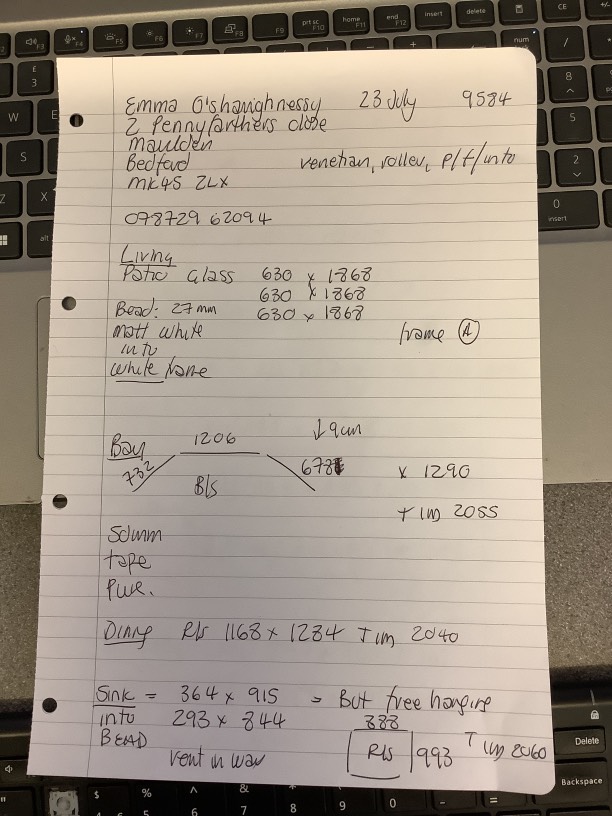 Emma O'shaughnessy 23 July 9584
2 Pennyfarthers close
Maulden
Bedford venetian, roller, P/f/into
MK45 2LX
078729 62094
Living
Patio Glass 630 x 1868
630 x 1868
Bead: 27mm 630 x 1868
matt white frame A
into
white fame
Bay 1206 ↓9cm
732 678 x 1290
B/s T us 2055
50mm
tape
Pure.
Dinng R/s 1168 x 1284 T us 2040
Sink = 364 x 915 = But free hanging
into 293 x 844 888
BEAD R/s 993 T us 2060
vent in way